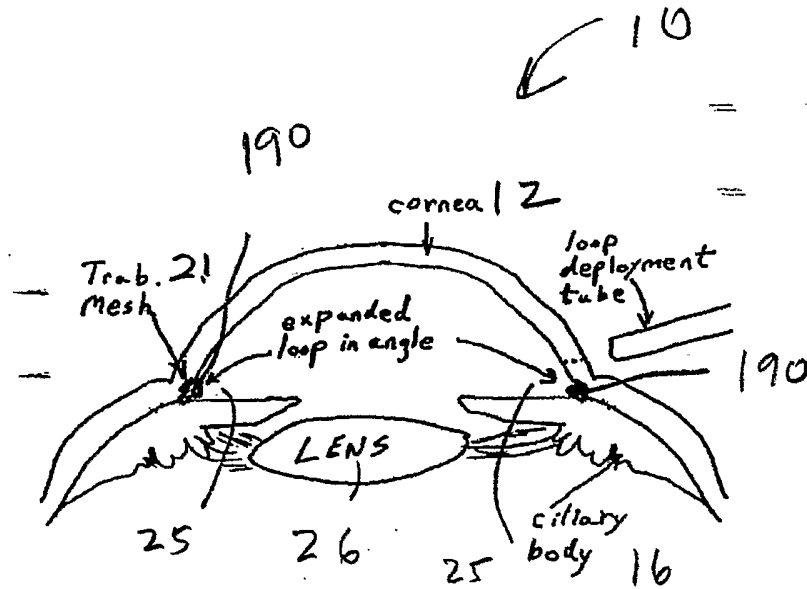 10
190
cornea 12
loop
deployment
tube
Trab. 21
Mesh
expanded
loop in angle
190
LENS
25
26
25
ciliary
body
16